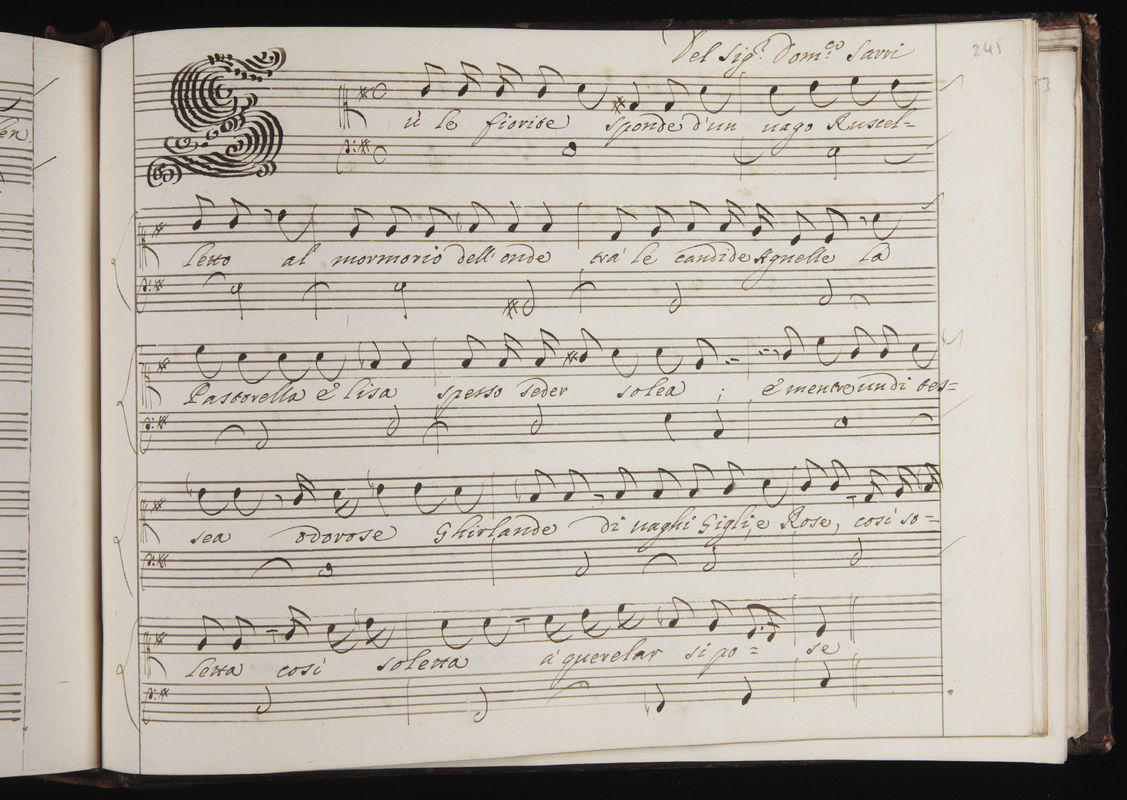 Del Sig.r Dom.co Sarri
241
Sù le fiorite sponde d'un uago Ruscel=
letto al mormorio dell'onde trà le candide Agnelle la
Pastorella e'lisa spesso seder solea ; e' mentre un di tes=
sea odorose Ghirlande di uaghi Gigli, e Rose, così so=
letta così soletta à querelar si po= se